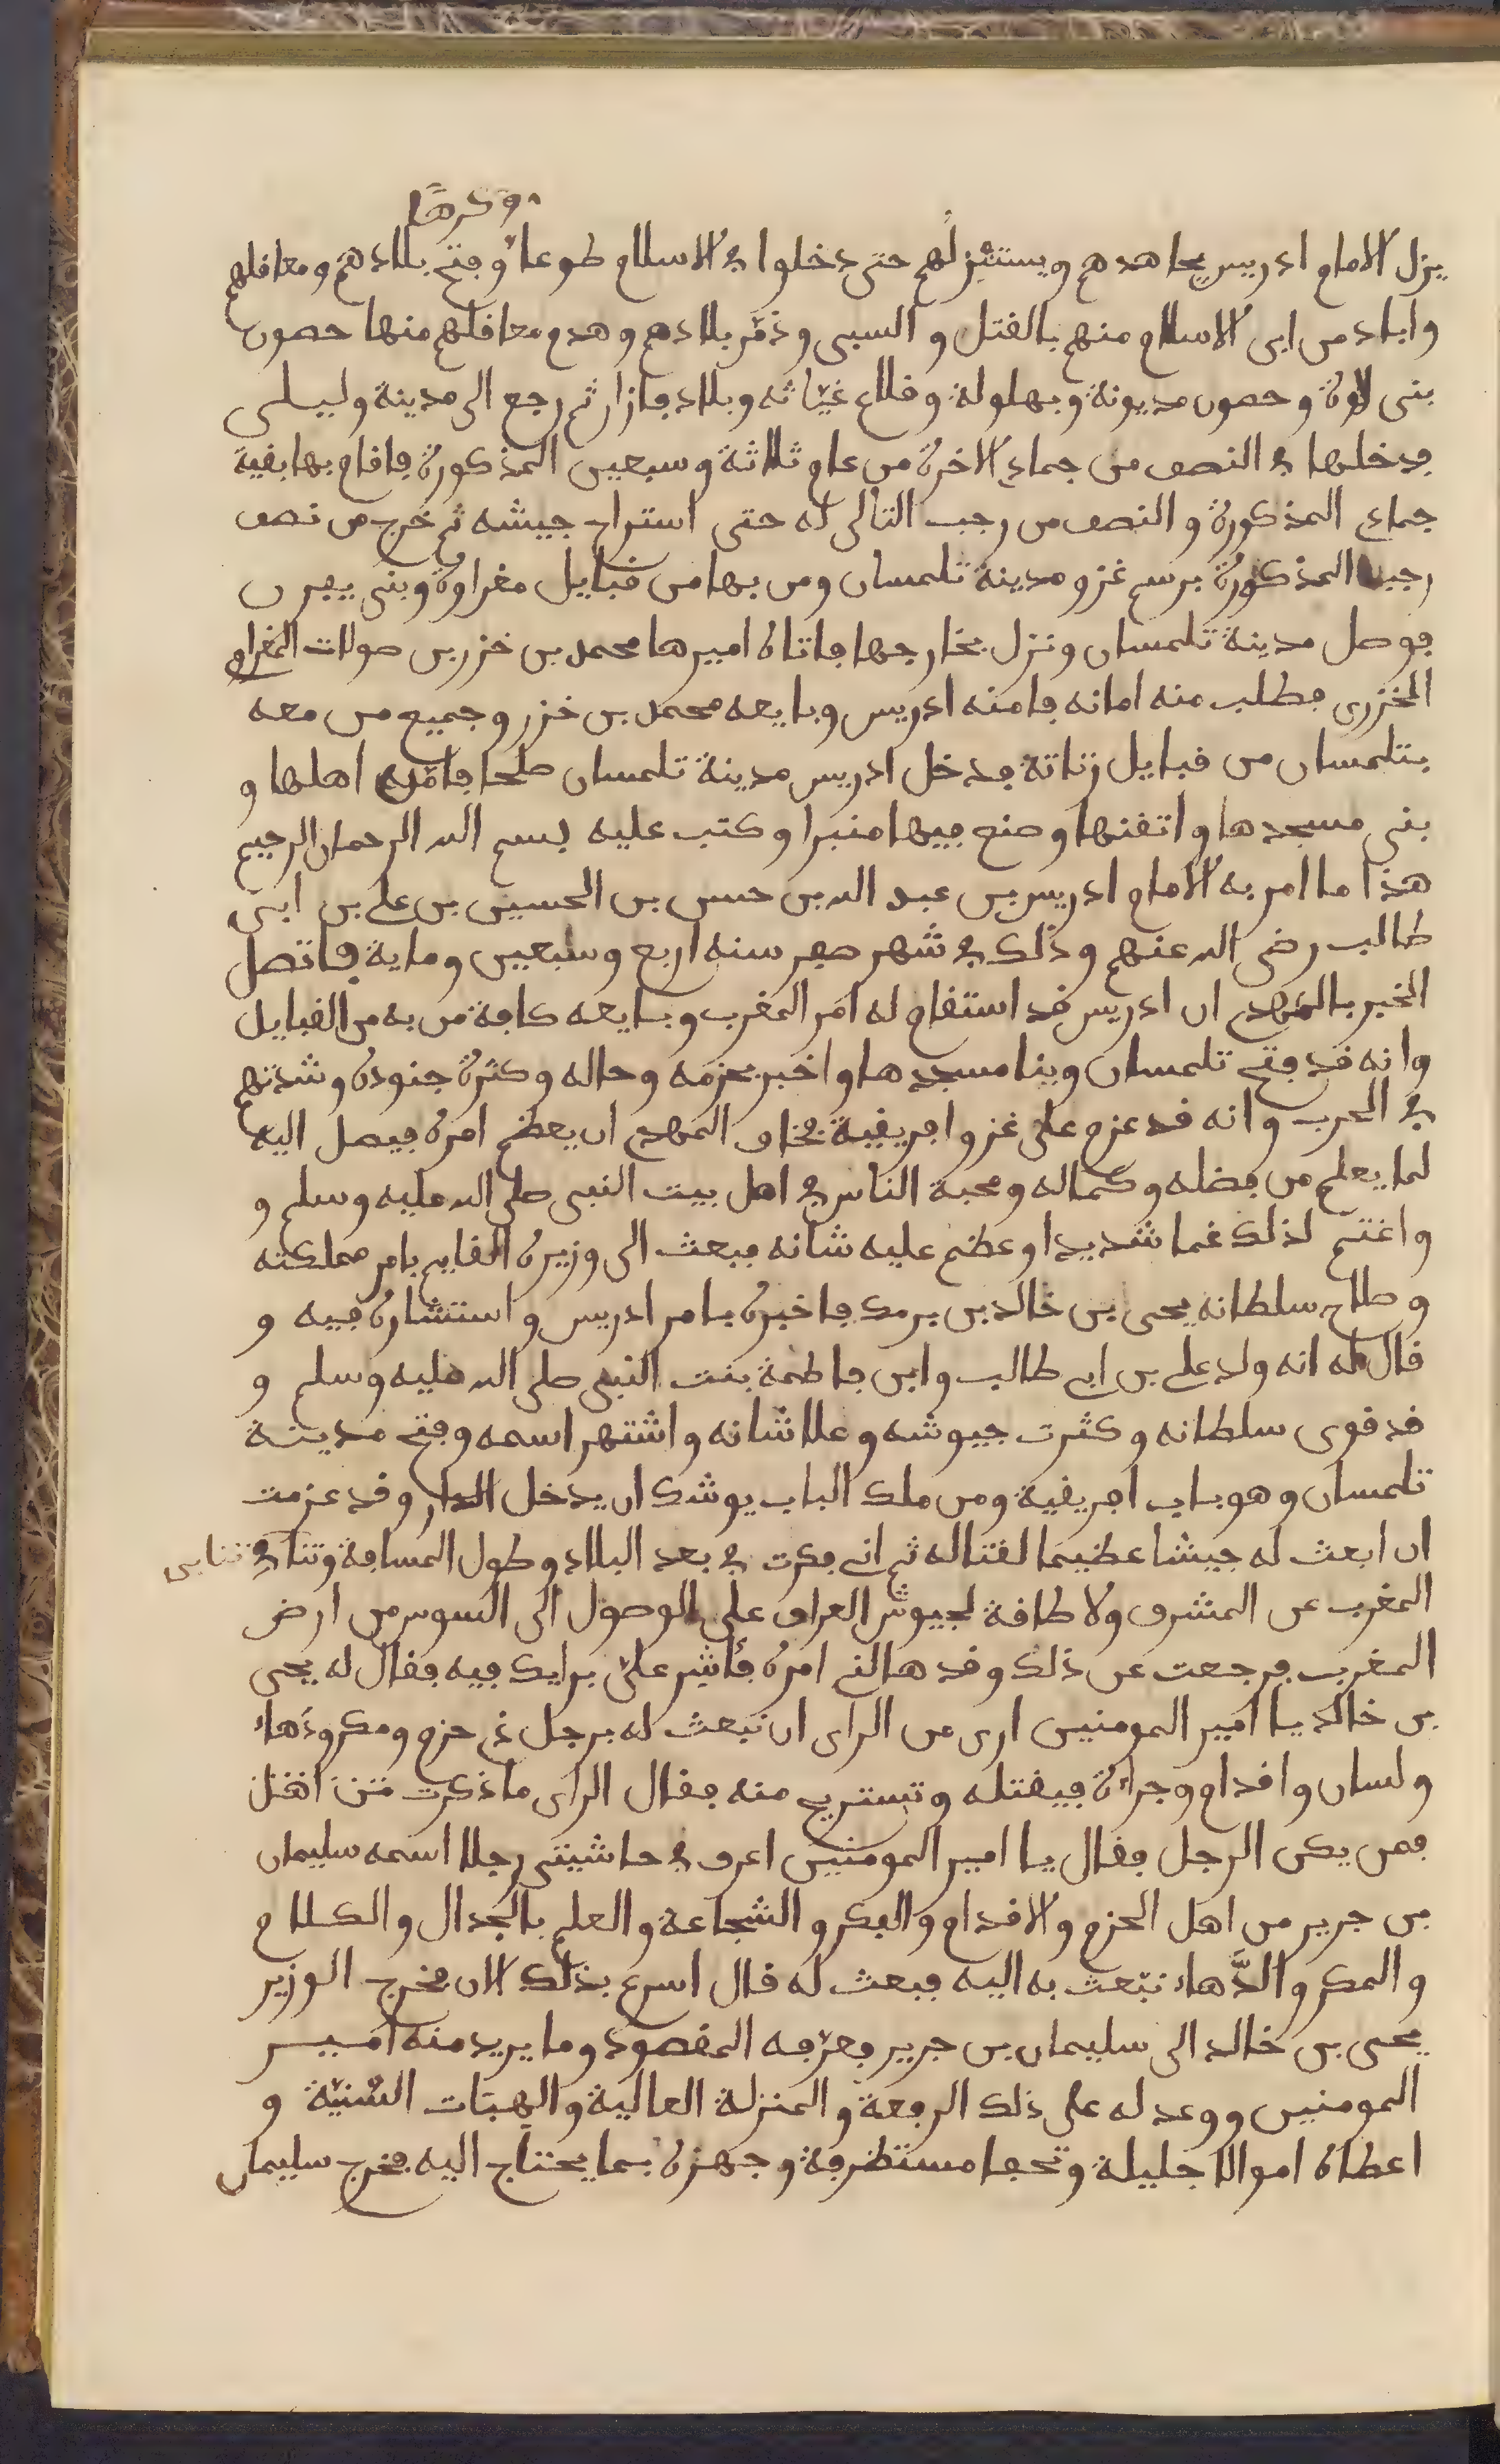 وكرهًا
يزل الامام ادريس يجاهدهم ويستنزلهم حتى دخلوا في الاسلام طوعا وفتح بلادهم ومعاقلهم
واباد من ابى الاسلام منهم بالقتل والسبى ودمّر بلادهم وهدم معاقلهم منها حصون
بنى لاوة وحصون مديونة وبهلولة وقلاع غيّاثه وبلاد فازاز ثم رجع الى مدينة وليلى
فدخلها في النصف من جمادى الاخرة من عام ثلاثة وسبعين المذكورة فاقام بها بقية
جمادى المذكورة والنصف من رجب التالى له حتى استراح جيشه ثم خرج من نصف
رجب المذكورة برسم غزو مدينة تلمسان ومن بها من قبايل مغراوة وبنى يفرن
فوصل مدينة تلمسان ونزل بخارجها فاتاه اميرها محمد بن خزر بن صولات المغراوى
الخزرى فطلب منه امانه فامنه ادريس وبايعه محمد بن خزر وجميع من معه
بتلمسان من قبايل زناتة فدخل ادريس مدينة تلمسان صلحا فامّن اهلها و
بنى مسجدها واتقنها وصنع فيها منبرا وكتب عليه بسم الله الرحمان الرحيم
هذا ما امر به الامام ادريس بن عبد الله بن حسن بن الحسين بن على بن ابى
طالب رضى الله عنهم وذلك في شهر صفر سنه اربع وسبعين وماية فاتصل
الخبر بالمهدى ان ادريس قد استقام له امر المغرب وبايعه كافة من به من القبايل
وانه قد فتح تلمسان وبنا مسجدها واخبر بعزمه وحاله وكثرة جنوده وشدتهم
في الحرب وانه قد عزم على غزو افريقية فخاف المهدى ان يعظم امره فيصل اليه
لما يعلم من فضله وكماله ومحبة الناس في اهل بيت النبى صلى الله عليه وسلم و
واغتم لذلك غما شديدا وعظم عليه شانه فبعث الى وزيره القايم بامر مملكته
وصلاح سلطانه يحيى بن خالد بن برمك فاخبره بامر ادريس واستشاره فيه و
قال له انه ولد على بن ابى طالب وابن فاطمة بنت النبى صلى الله عليه وسلم و
قد قوى سلطانه وكثرت جيوشه وعلا شانه واشتهر اسمه وفتح مدينة
تلمسان وهو باب افريقية ومن ملك الباب يوشك ان يدخل الدار وقد عزمت
ان ابعث له جيشا عظيما لقتاله ثم انى فكرت في بعد البلاد وطول المسافة وتنائى
المغرب عن المشرق ولا طاقة لجيوش العراق على الوصول الى السوس من ارض
المغرب فرجعت عن ذلك وقد هالنى امره فأشير علىّ برايك فيه فقال له يحيى
بن خالد يا امير المومنين ارى من الراى ان تبعث له برجل ذى حزم ومكر ودهاء
ولسان واقدام وجراة فيقتله وتستريح منه فقال الراى ما ذكرت
فمن يكن الرجل فقال يا امير المومنين اعرف في حاشيتى رجلا اسمه سليمان
بن جرير من اهل الحزم والاقدام والفكر والشجاعة والعلم بالجدال والكلام
والمكر والدَّهاء نبعث به اليه فبعث له قال اسرع بذلك الان فخرج الوزير
يحيى بن خالد الى سليمان بن جرير فعرّفه المقصود وما يريد منه امير
المومنين ووعد له على ذلك الرفعة والمنزلة العالية والهبات السّنيّة و
اعطاه اموالا جليلة وتحفا مستظرفة وجهزه بما يحتاج اليه فخرج سليمان